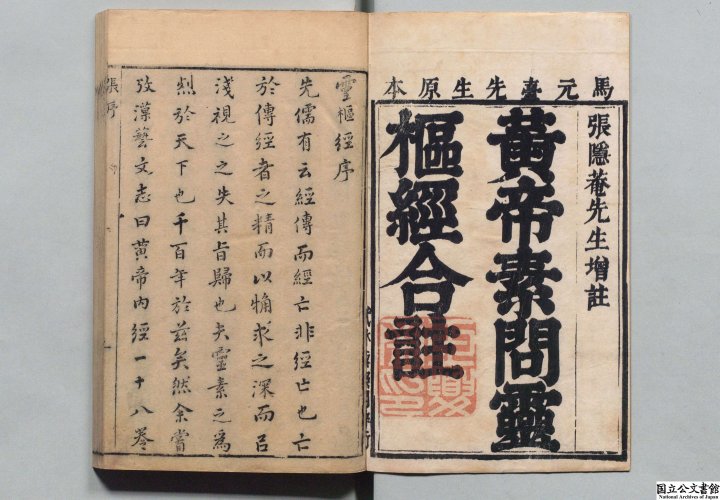 馬元臺先生原本
張隱菴先生增註
黃帝素問靈
樞經合註
靈樞經序
先儒有云經傳而經亡非經亡也亡
於傳經者之精而以觕求之深而呂
淺視之之失其旨歸也夫靈素之為
烈於天下也千百年於茲矣然余嘗
攷漢藝文志曰黃帝內經一十八卷
張序
国立公文書館
National Archives of Japan